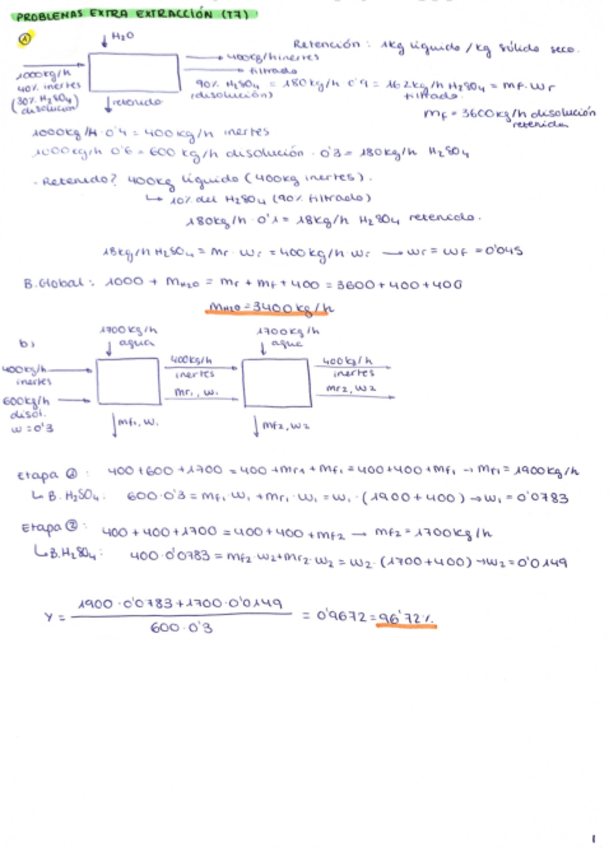 PROBLEMAS EXTRA EXTRACCIÓN (T7)
1
H2O
Retención: 1kg líquido/kg sólido seco.
400kg/h inertes
filtrado
1000kg/h
40% inertes
(30% H2SO4)
disolución
retenido
90% H2SO4 = 180kg/h 0'9 = 162kg/h H2SO4 = mf·wf
(disolución) filtrado
mf = 3600kg/h disolución
retenida
1000kg/h·0'4 = 400kg/h inertes
1000kg/h 0'6 = 600 kg/h disolución · 0'3 = 180kg/h H2SO4
·Retenido? 400kg líquido (400kg inertes).
↳ 10% del H2SO4 (90% filtrado)
180kg/h·0'1 = 18kg/h H2SO4 retenido.
18kg/h H2SO4 = mr·wr = 400kg/h wr → wr = wf = 0'045
B.Global: 1000 + mH2O = mr + mf + 400 = 3600 + 400 + 400
mH2O = 3400 kg/h
b)
1700kg/h
agua
1700kg/h
agua
400kg/h
inertes
400kg/h
inertes
400kg/h
inertes
mr1, w1
mr2, w2
600kg/h
disol.
w = 0'3
mf1, w1
mf2, w2
Etapa 1: 400 + 600 + 1700 = 400 + mr1 + mf1 = 400 + 400 + mf1 → mf1 = 1900kg/h
↳ B. H2SO4: 600·0'3 = mf1·w1 + mr1·w1 = w1·(1900 + 400) → w1 = 0'0783
Etapa 2: 400 + 400 + 1700 = 400 + 400 + mf2 → mf2 = 1700kg/h
↳ B. H2SO4: 400·0'0783 = mf2·w2 + mr2·w2 = w2·(1700 + 400) → w2 = 0'0149
Y = 1900·0'0783 + 1700·0'0149 / 600·0'3 = 0'9672 = 96'72%
1